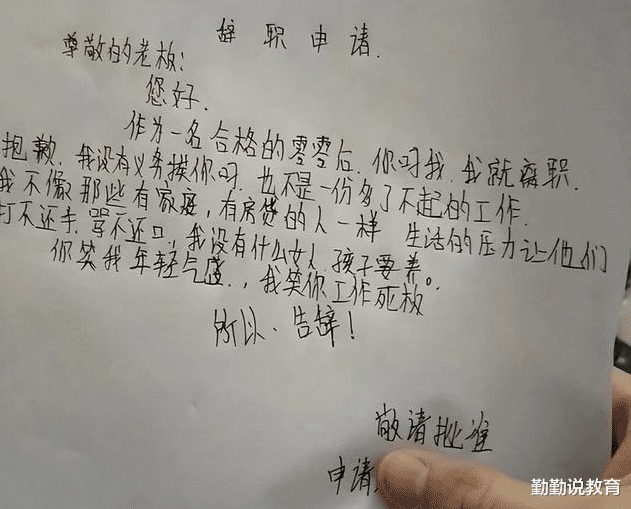 辞职申请.
尊敬的老板:
您好.
作为一名合格的零零后.你叼我.我就离职.
抱歉.我没有义务挨你叼.也不是一份多了不起的工作.
我不像那些有家庭,有房贷的人一样 生活的压力让他们
打不还手.骂不还口,我没有什么女人.孩子要养。
你笑我年轻气盛.,我笑你工作死板
所以、告辞!
敬请批准
申请
勤勤说教育